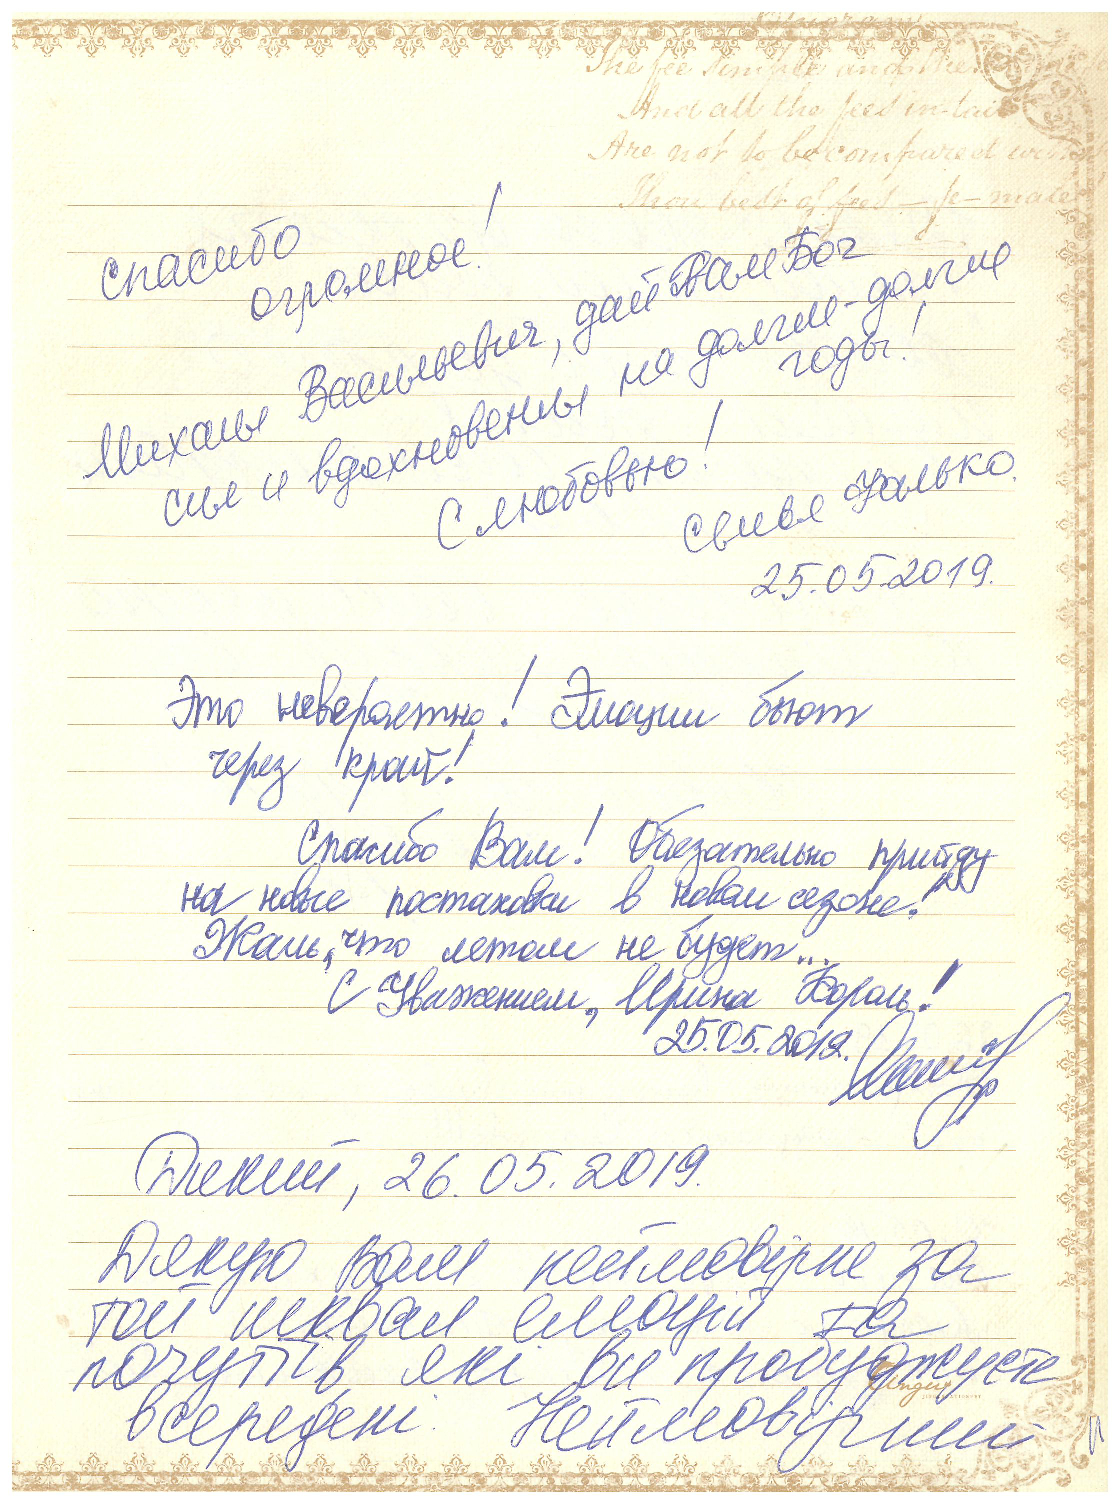 The fee simple and the
And all the fees in-tail
Are not to be compared with
Thou best of fees — fe-male
Спасибо
огромное!
Михаил Васильевич, дай Вам Бог
сил и вдохновения на долгие-долгие
годы!
С любовью!
семья Халько.
25.05.2019.
Это невероятно! Эмоции бьют
через край!
Спасибо Вам! Обезательно прийду
на новые постановки в новом сезоне!
Жаль, что летом не будет...
С Уважением, Ирина Король!
25.05.2019.
Дикий, 26.05.2019.
Дякую вам неймовірне за
той шквал емоцій та
почуттів які ви пробуджуєте
всередені. Неймовірний